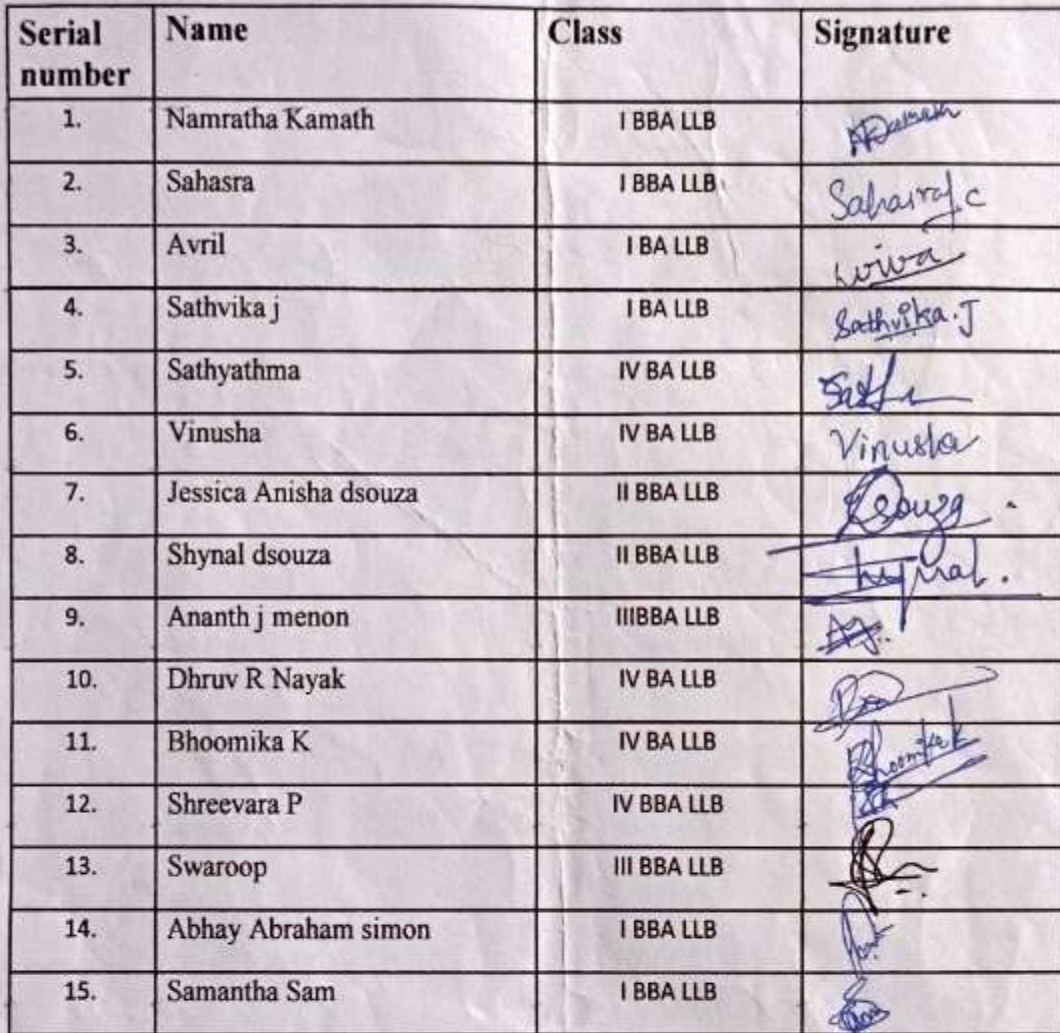 Serial number Name Class Signature
1. Namratha Kamath I BBA LLB
2. Sahasra I BBA LLB
3. Avril I BA LLB
4. Sathvika j I BA LLB Sathvika.J
5. Sathyathma IV BA LLB
6. Vinusha IV BA LLB Vinusha
7. Jessica Anisha dsouza II BBA LLB Dsouza
8. Shynal dsouza II BBA LLB Shynal.
9. Ananth j menon IIIBBA LLB
10. Dhruv R Nayak IV BA LLB
11. Bhoomika K IV BA LLB Bhoomika k
12. Shreevara P IV BBA LLB
13. Swaroop III BBA LLB
14. Abhay Abraham simon I BBA LLB
15. Samantha Sam I BBA LLB